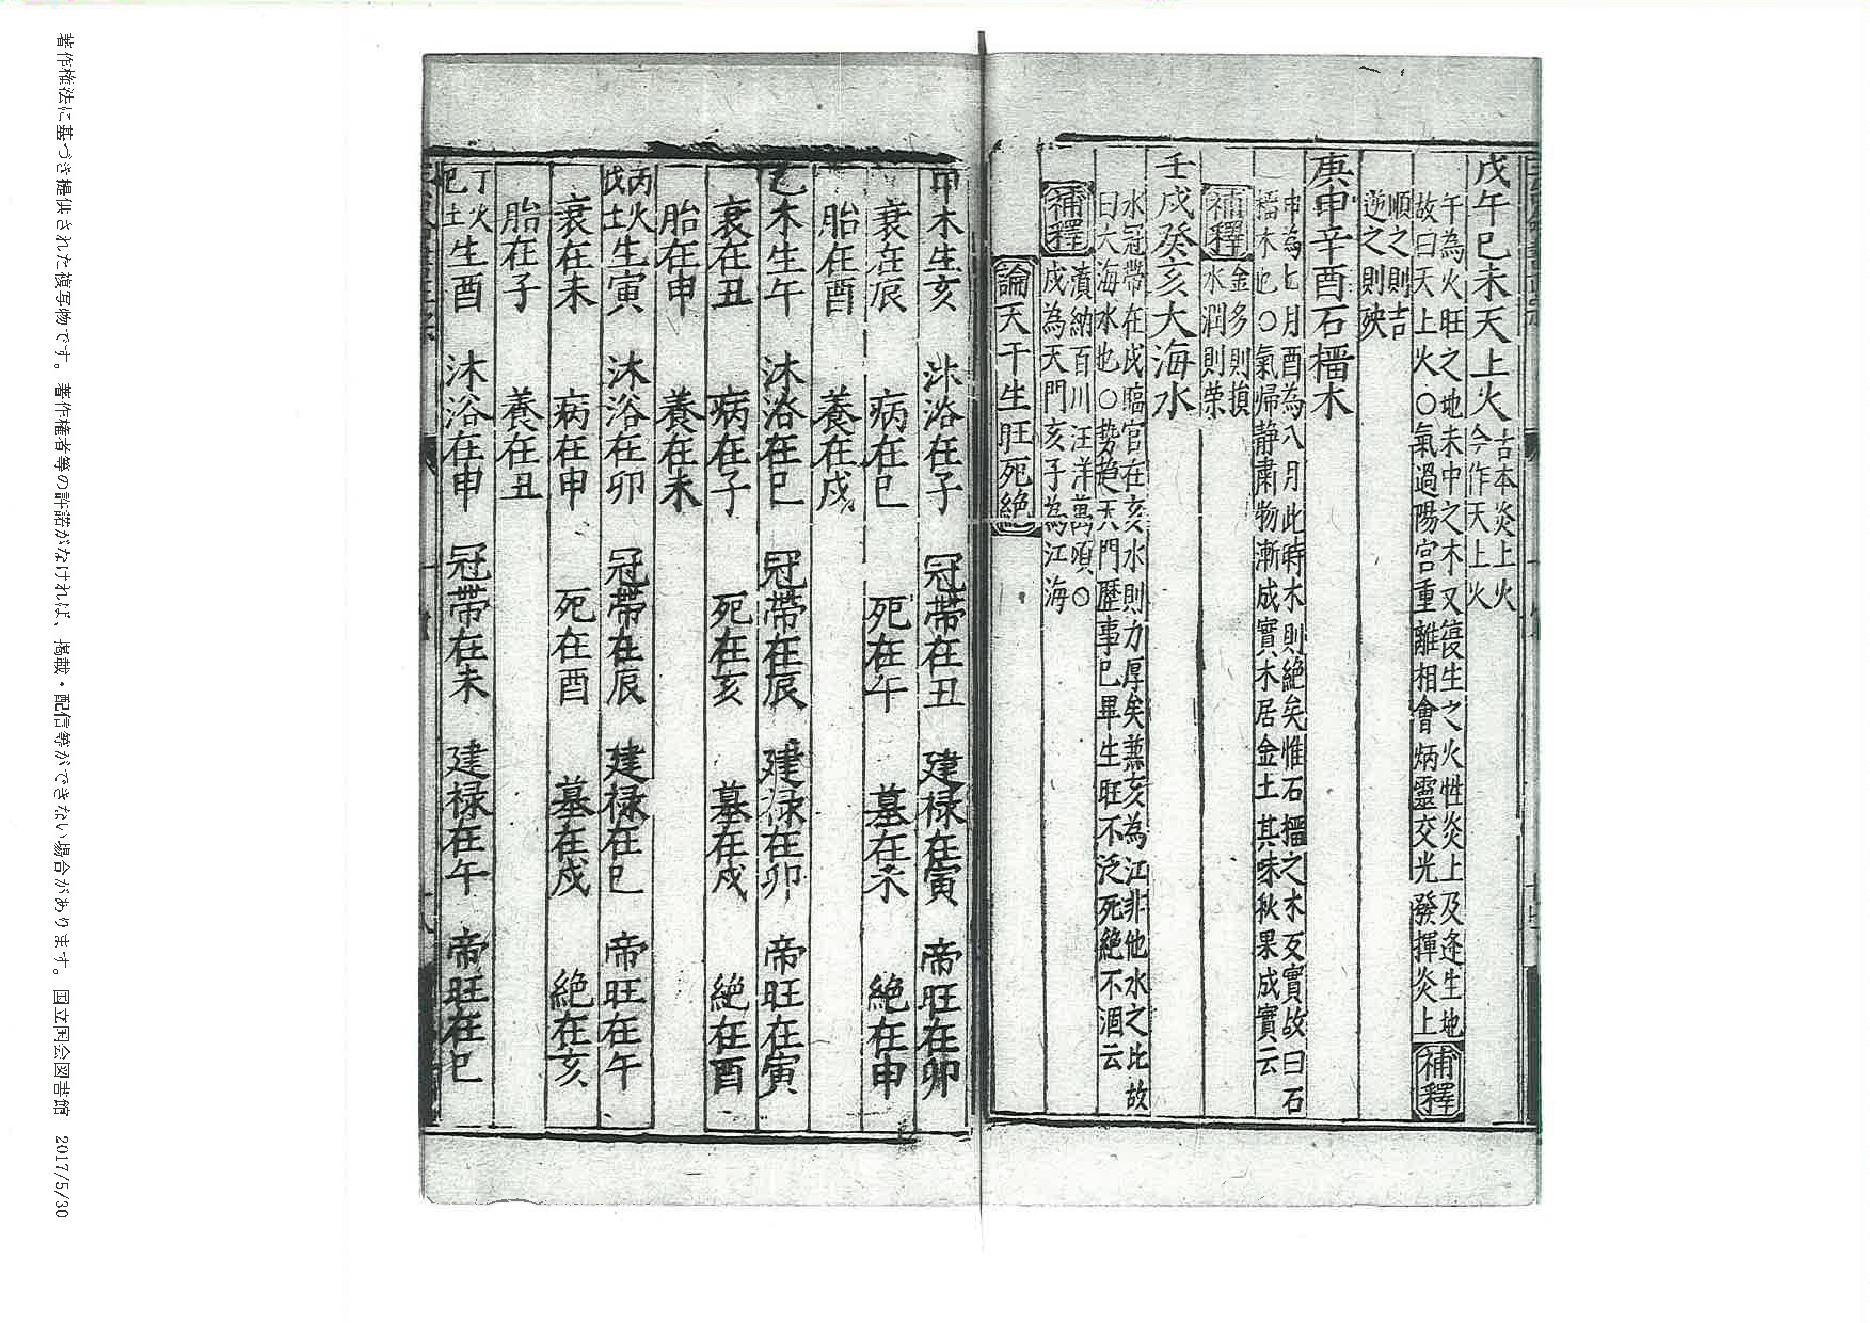 戊午己未天上火
古本炎上火
今作天上火
午為火旺之地未中之木又復生之火性炎上及逢生地
故曰天上火〇氣過陽宫重離相會炳靈交光發揮炎上
補釋
順之則吉
逆之則殃
庚申辛酉石榴木
申為七月酉為八月此時木則絶矣惟石榴之木反實故曰石
榴木也〇氣帰静肅物漸成實木居金土其味秋果成實云
補釋
金多則損
水潤則荣
壬戌癸亥大海水
水冠帶在戌臨官在亥水則力厚矣兼亥為江非他水之比故
曰大海水也〇勢趋天門歷事已畢生旺不泛死絶不涸云
補釋
瀆納百川汪洋萬頃〇
戌為天門亥子為江海
論天干生旺死絶
甲木生亥 沐浴在子 冠帶在丑 建禄在寅 帝旺在卯
衰在辰 病在巳 死在午 墓在未 絶在申
胎在酉 養在戌
乙木生午 沐浴在巳 冠帶在辰 建禄在卯 帝旺在寅
衰在丑 病在子 死在亥 墓在戌 絶在酉
胎在申 養在未
丙火戊土生寅 沐浴在卯 冠帶在辰 建禄在巳 帝旺在午
衰在未 病在申 死在酉 墓在戌 絶在亥
胎在子 養在丑
丁火己土生酉 沐浴在申 冠帶在未 建禄在午 帝旺在巳
著作権法に基づき提供された複写物です。著作権者等の許諾がなければ、掲載・配信等ができない場合があります。 国立国会図書館 2017/5/30